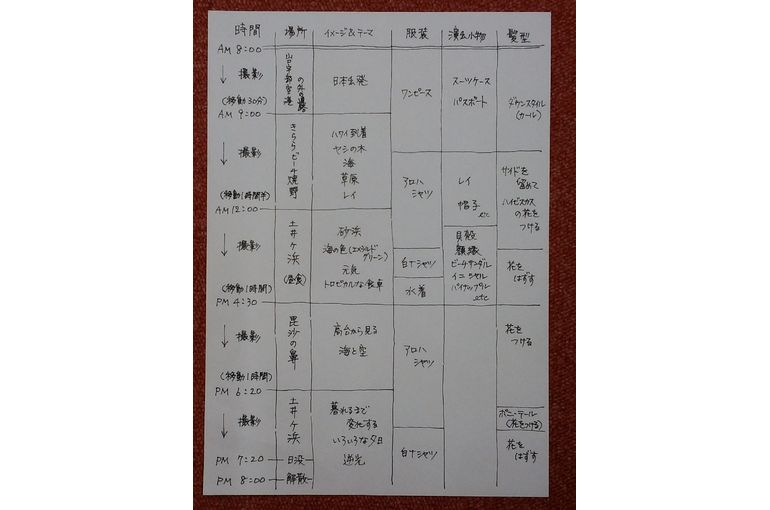 時間 場所 イメージ&テーマ 服装 演出小物 髪型
AM 8:00
↓ 撮影
(移動30分)
山口宇部空港
の外の道路
日本出発
ワンピース
スーツケース
パスポート
ダウンスタイル
(カール)
AM 9:00
↓ 撮影
(移動1時間半)
きららビーチ焼野
ハワイ到着
ヤシの木
海
草原
レイ
アロハ
シャツ
レイ
帽子
etc
サイドを
留めて
ハイビスカス
の花を
つける
AM 12:00
↓ 撮影
(移動1時間)
土井ヶ浜
(昼食)
砂浜
海の色(エメラルド
グリーン)
元気
トロピカルな食卓
白Tシャツ
水着
貝殻
額縁
ビーチサンダル
イニシャル
パイナップル
etc
花を
はずす
PM 4:30
↓ 撮影
(移動1時間)
毘沙の鼻
高台から見る
海と空
アロハ
シャツ
花を
つける
PM 6:20
↓ 撮影
土井ヶ浜
暮れるまで
変化する
いろいろな夕日
逆光
白Tシャツ
ポニーテール
(花をつける)
花を
はずす
PM 7:20 日没
PM 8:00 解散